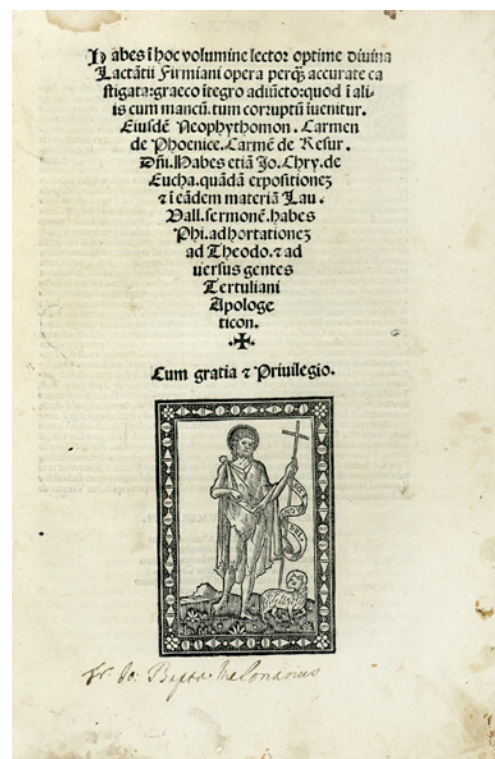 Habes ī hoc volumine lector optime diuina
Lactātii Firmiani opera perq̄ȝ accurate ca
stigata:graeco ītegro adiūcto:quod ī ali⸗
is cum mancū.tum corruptū īuenitur.
Eiusdē Neophythomon. Carmen
de Phoenice.Carmē de Resur.
Dn̄i.Habes etiā Jo.Chry.de
Eucha.quādā expositioneȝ
⁊ ī eādem materiā Lau.
Vall.sermonē.habes
Phi.adhortationeȝ
ad Theodo.⁊ ad
uersus gentes
Tertuliani
Apologe
ticon.
Cum gratia ⁊ Priuilegio.
fr. Jo: Bapta